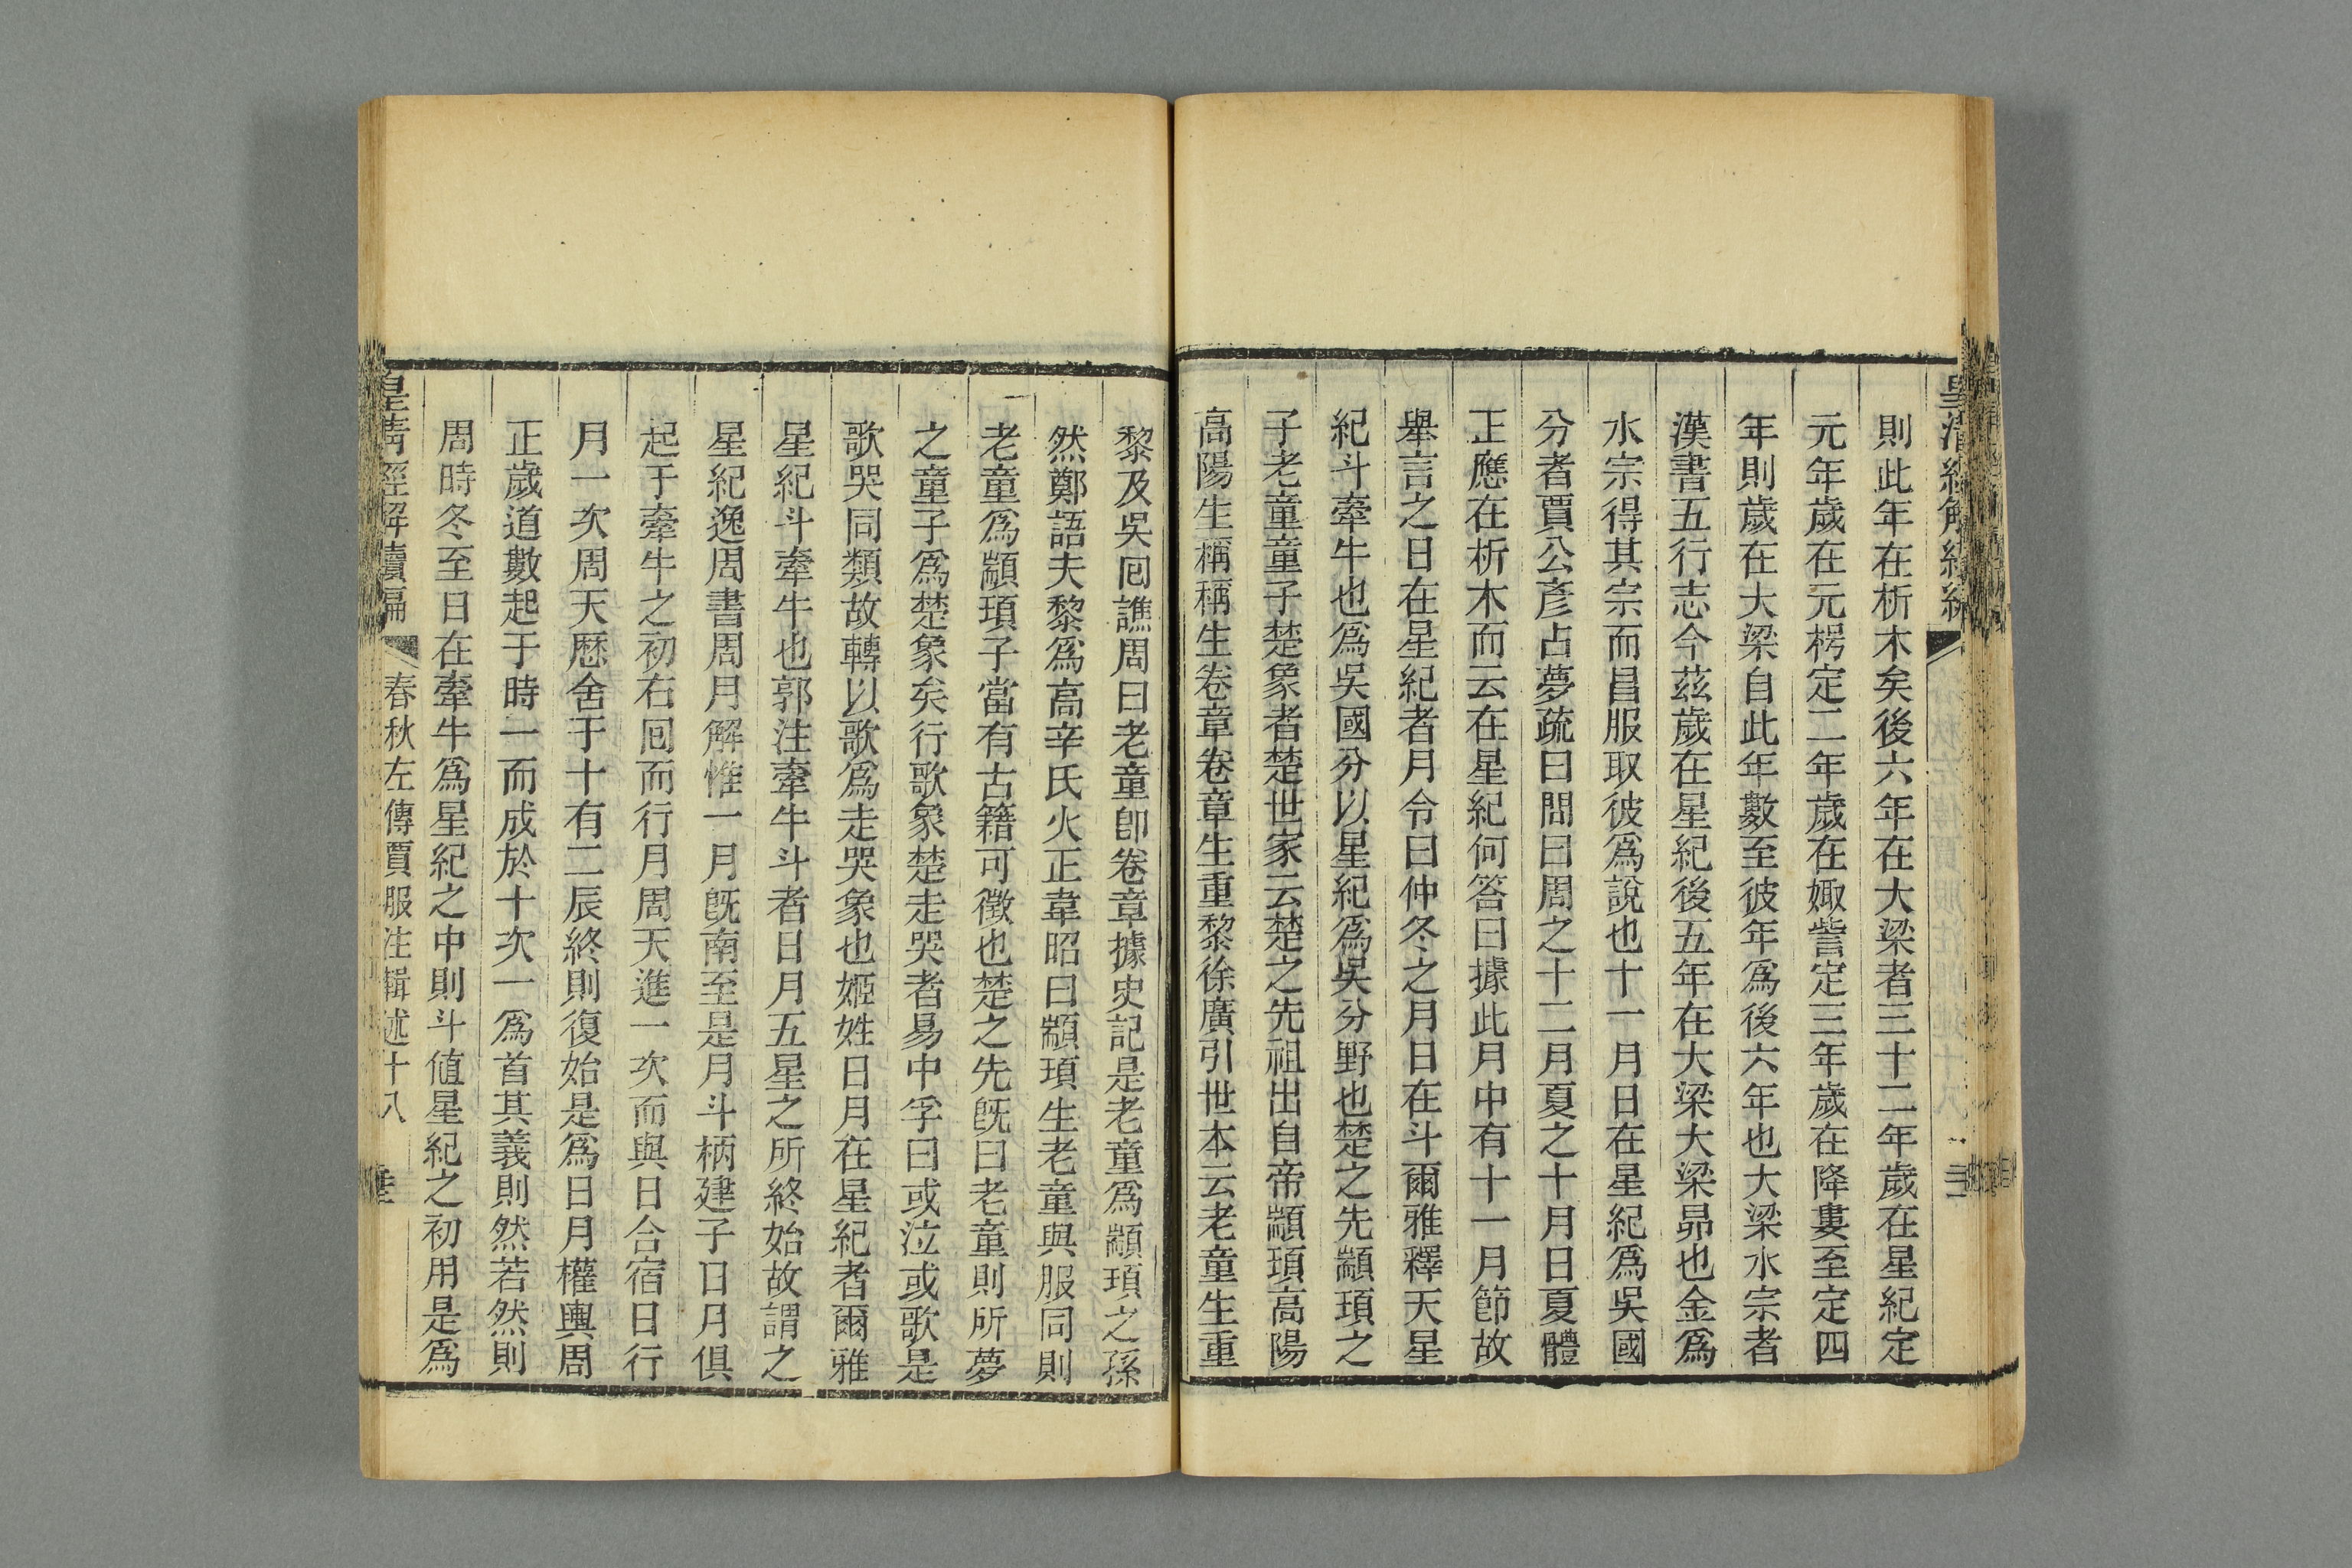 則此年在析木矣後六年在大梁者三十二年歲在星紀定
元年歲在元枵定二年歲在娵訾定三年歲在降婁至定四
年則歲在大梁自此年數至彼年爲後六年也大梁水宗者
漢書五行志今茲歲在星紀後五年在大梁大梁昴也金爲
水宗得其宗而昌服取彼爲說也十一月日在星紀爲吳國
分者賈公彥占夢疏曰問曰周之十二月夏之十月日夏體
正應在析木而云在星紀何答曰據此月中有十一月節故
舉言之日在星紀者月令曰仲冬之月日在斗爾雅釋天星
紀斗牽牛也爲吳國分以星紀爲吳分野也楚之先顓頊之
子老童童子楚象者楚世家云楚之先祖出自帝顓頊高陽
高陽生稱稱生卷章卷章生重黎徐廣引世本云老童生重
黎及吳囘譙周曰老童卽卷章據史記是老童爲顓頊之孫
然鄭語夫黎爲高辛氏火正韋昭曰顓頊生老童與服同則
老童爲顓頊子當有古籍可徵也楚之先旣曰老童則所夢
之童子爲楚象矣行歌象楚走哭者易中孚曰或泣或歌是
歌哭同類故轉以歌爲走哭象也姬姓日月在星紀者爾雅
星紀斗牽牛也郭注牽牛斗者日月五星之所終始故謂之
星紀逸周書周月解惟一月旣南至是月斗柄建子日月俱
起于牽牛之初右囘而行月周天進一次而與日合宿日行
月一次周天厯舍于十有二辰終則復始是爲日月權輿周
正歲道數起于時一而成於十次一爲首其義則然若然則
周時冬至日在牽牛爲星紀之中則斗値星紀之初用是爲
皇清經解續編
春秋左傳賈服注輯述十八